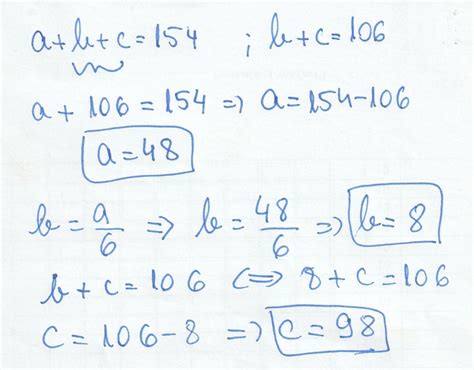 a+b+c=154 ; b+c=106
a + 106 = 154 => a=154-106
a=48
b = a/6 => b = 48/6 => b=8
b+c=106 <=> 8+c=106
c=106-8 => c=98